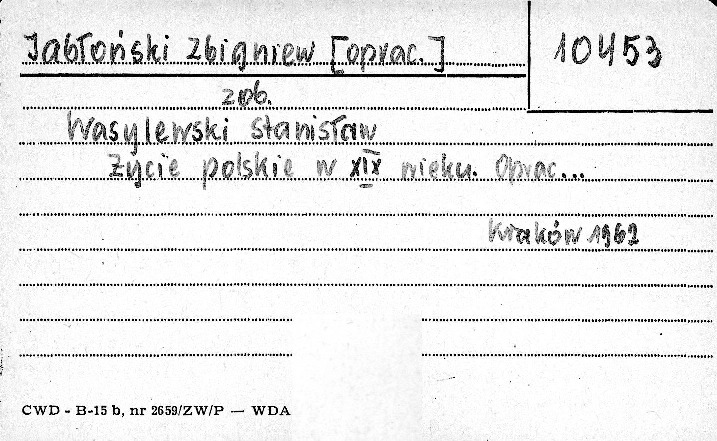 Jabłoński Zbigniew [oprac.]
10453
zob.
Wasylewski Stanisław
Życie polskie w XIX wieku. Oprac...
Kraków 1962
CWD - B-15 b, nr 2659/ZW/P — WDA